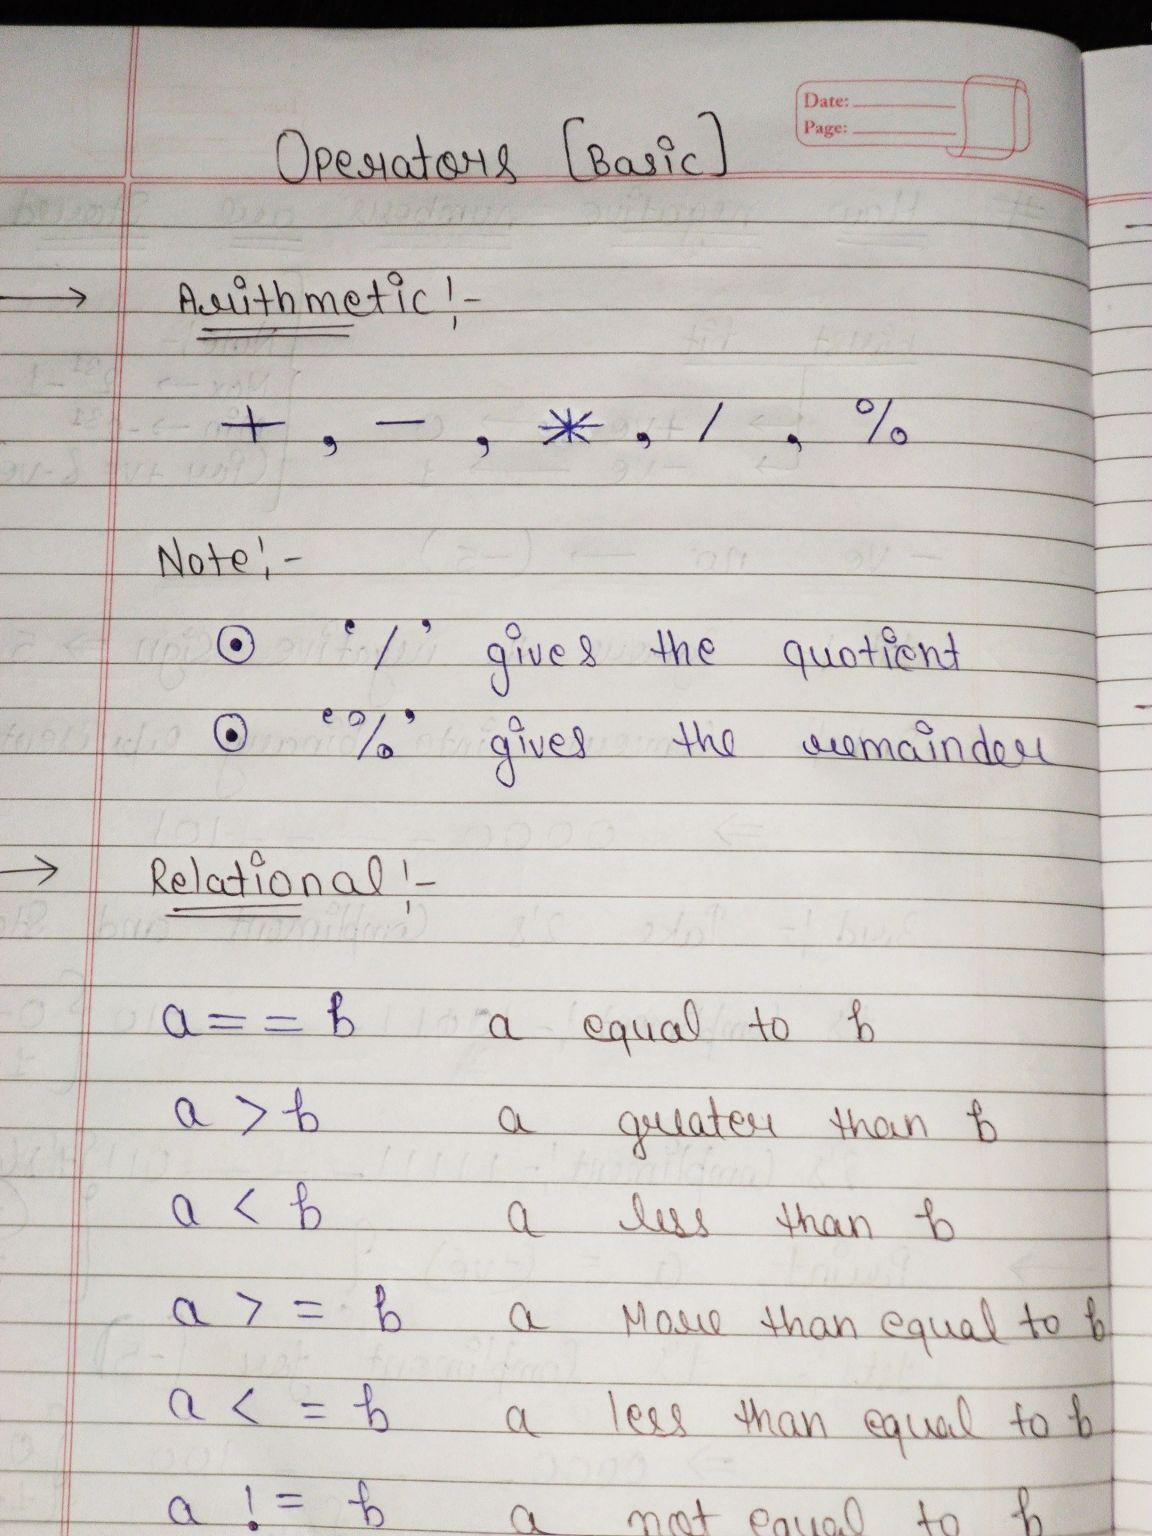 Date:
Page:
Operators [Basic]
→ Arithmetic :-
+ , - , * , / , %
Note :-
⊙ '/' gives the quotient
⊙ '%' gives the remainder
→ Relational :-
a == b a equal to b
a > b a greater than b
a < b a less than b
a >= b a More than equal to b
a <= b a less than equal to b
a != b a not equal to b